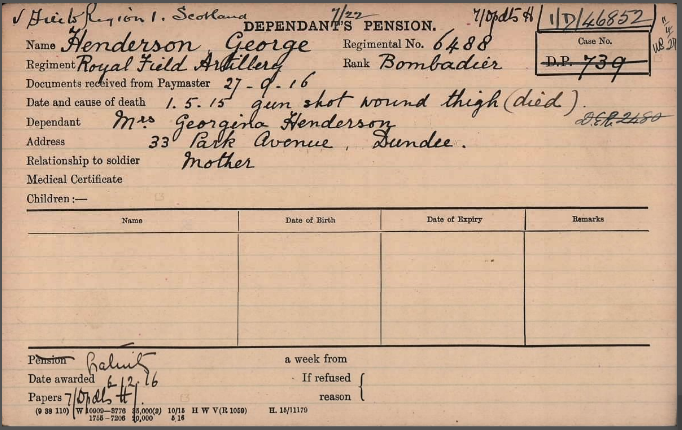 Region 1. Scotland 7/22 7/Dpdts H 1/D/46852
DEPENDANT'S PENSION.
Name Henderson George Regimental No. 6488 Case No.
Regiment Royal Field Artillery Rank Bombadier D.P. 739
Documents received from Paymaster 27-9-16
Date and cause of death 1.5.15 gun shot wound thigh (died).
Dependant Mrs Georgina Henderson
Address 33 Park Avenue, Dundee.
Relationship to soldier Mother
Medical Certificate
Children:—
Name Date of Birth Date of Expiry Remarks
Pension Gratuity a week from
Date awarded 6/2/16 If refused {
Papers 7/Dpdts H/. reason
(9 38 110) W 10909—3776 35,000(2) 10/15 H W V(R 1059) H. 15/11179
1755—7206 20,000 5/16